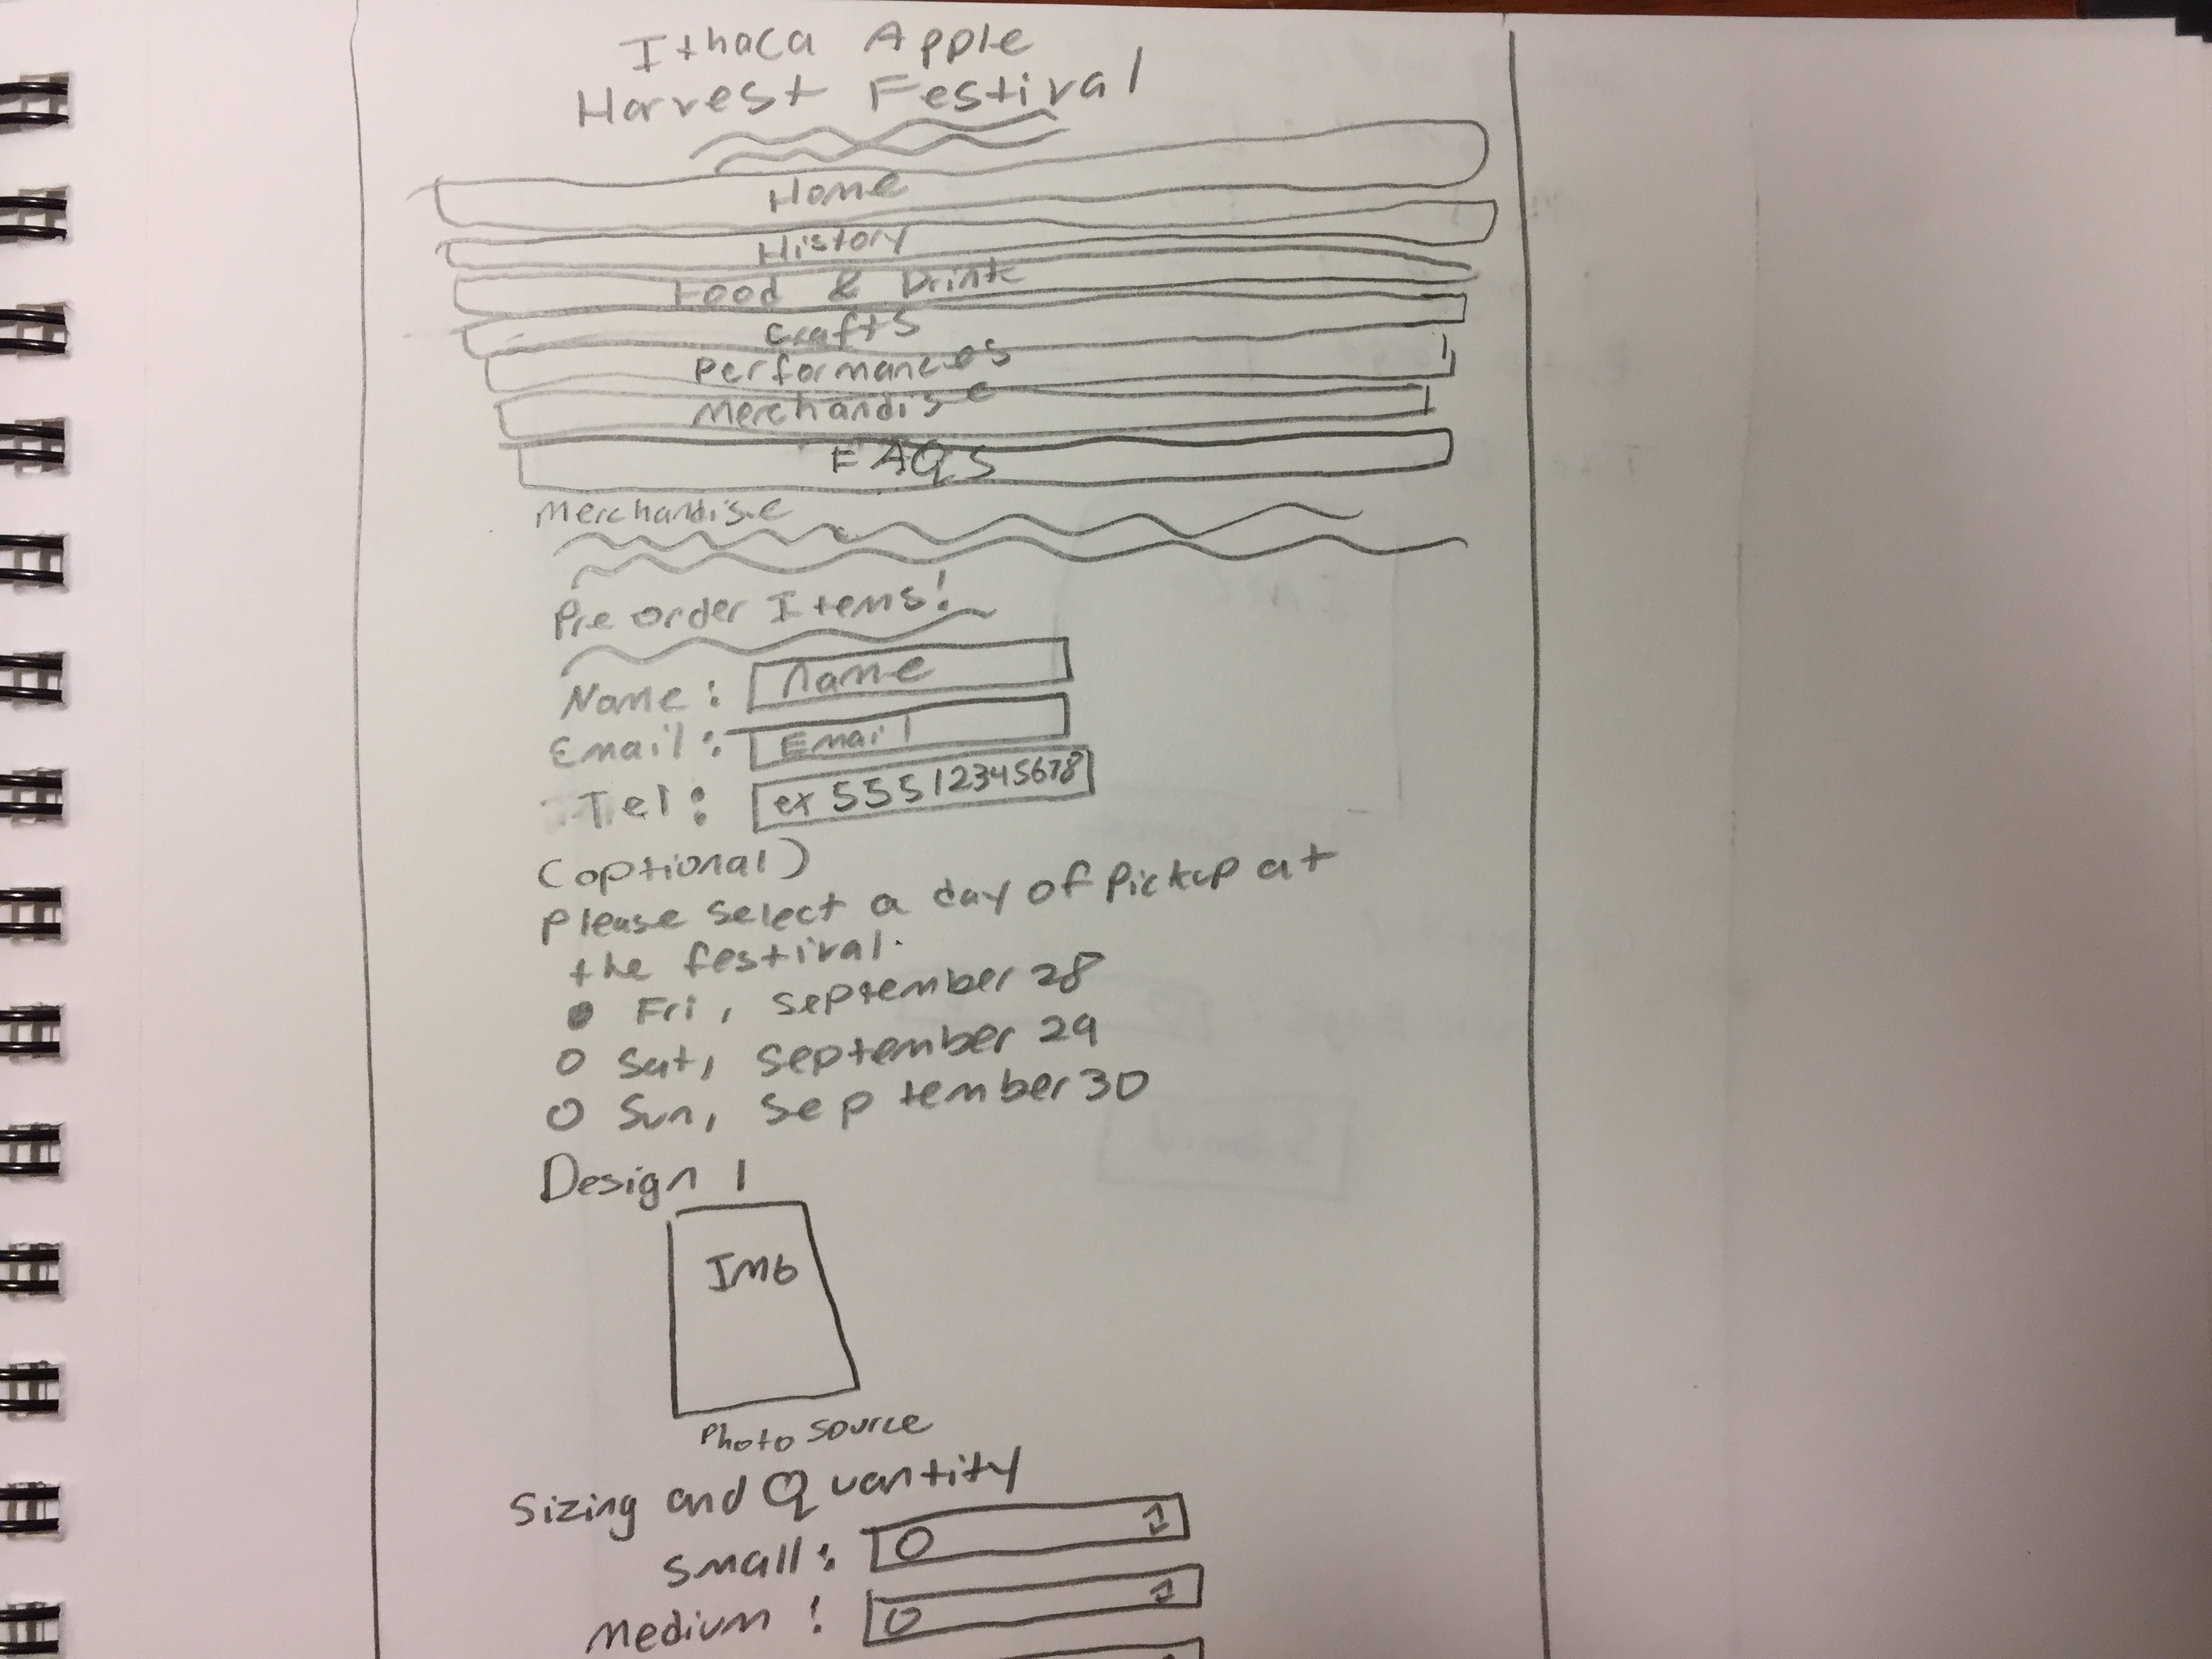 Ithaca Apple
Harvest Festival
Home
History
Food & Drink
Crafts
Performances
Merchandise
FAQS
Merchandise
Pre order Items!
Name: Name
Email: Email
Tel: ex 55512345678
(optional)
Please select a day of Pickup at
the festival.
Fri, September 28
Sat, September 29
Sun, September 30
Design 1
IMG
Photo Source
Sizing and Quantity
Small: 0
Medium: 0